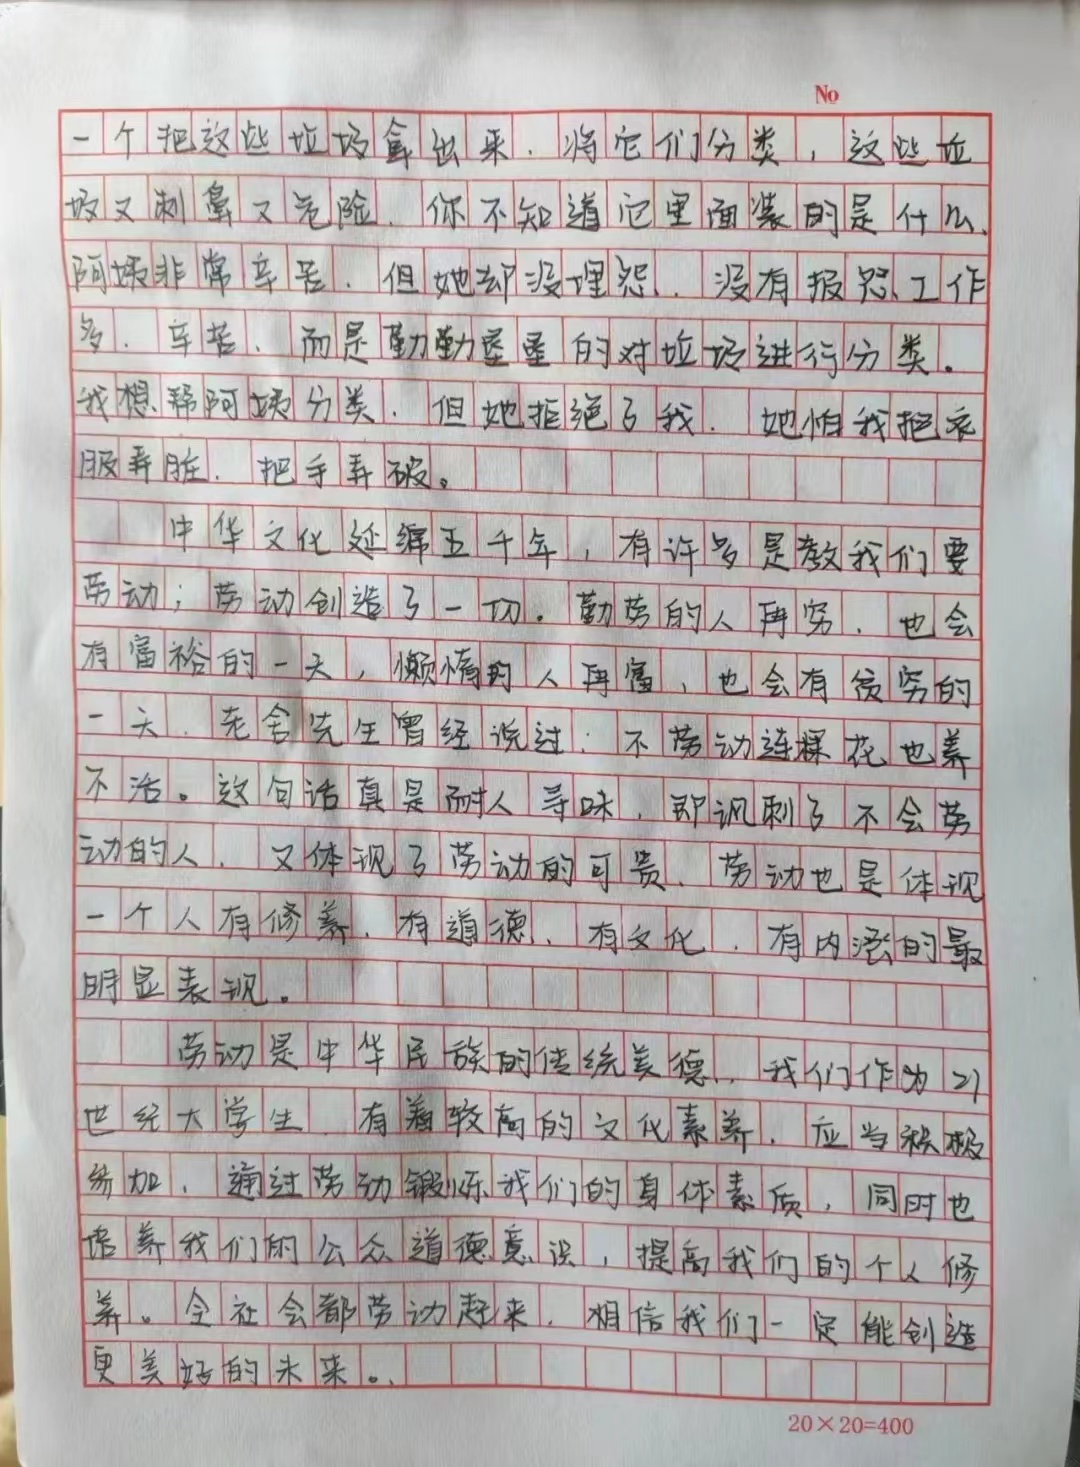 No
一个把这些垃圾拿出来，将它们分类，这些垃
圾又刺鼻又危险，你不知道它里面装的是什么，
阿姨非常辛苦，但她却没埋怨，没有报怨工作
多，辛苦，而是勤勤垦垦的对垃圾进行分类。
我想帮阿姨分类，但她拒绝了我，她怕我把衣
服弄脏，把手弄破。
中华文化延绵五千年，有许多是教我们要
劳动；劳动创造了一切。勤劳的人再穷，也会
有富裕的一天，懒惰的人再富，也会有贫穷的
一天，老舍先生曾经说过：不劳动连棵花也养
不活。这句话真是耐人寻味，即讽刺了不会劳
动的人，又体现了劳动的可贵，劳动也是体现
一个人有修养，有道德，有文化，有内涵的最
明显表现。
劳动是中华民族的传统美德，我们作为21
世纪大学生，有着较高的文化素养，应当积极
参加，通过劳动锻炼我们的身体素质，同时也
培养我们的公众道德意识，提高我们的个人修
养。全社会都劳动起来，相信我们一定能创造
更美好的未来。
20×20=400